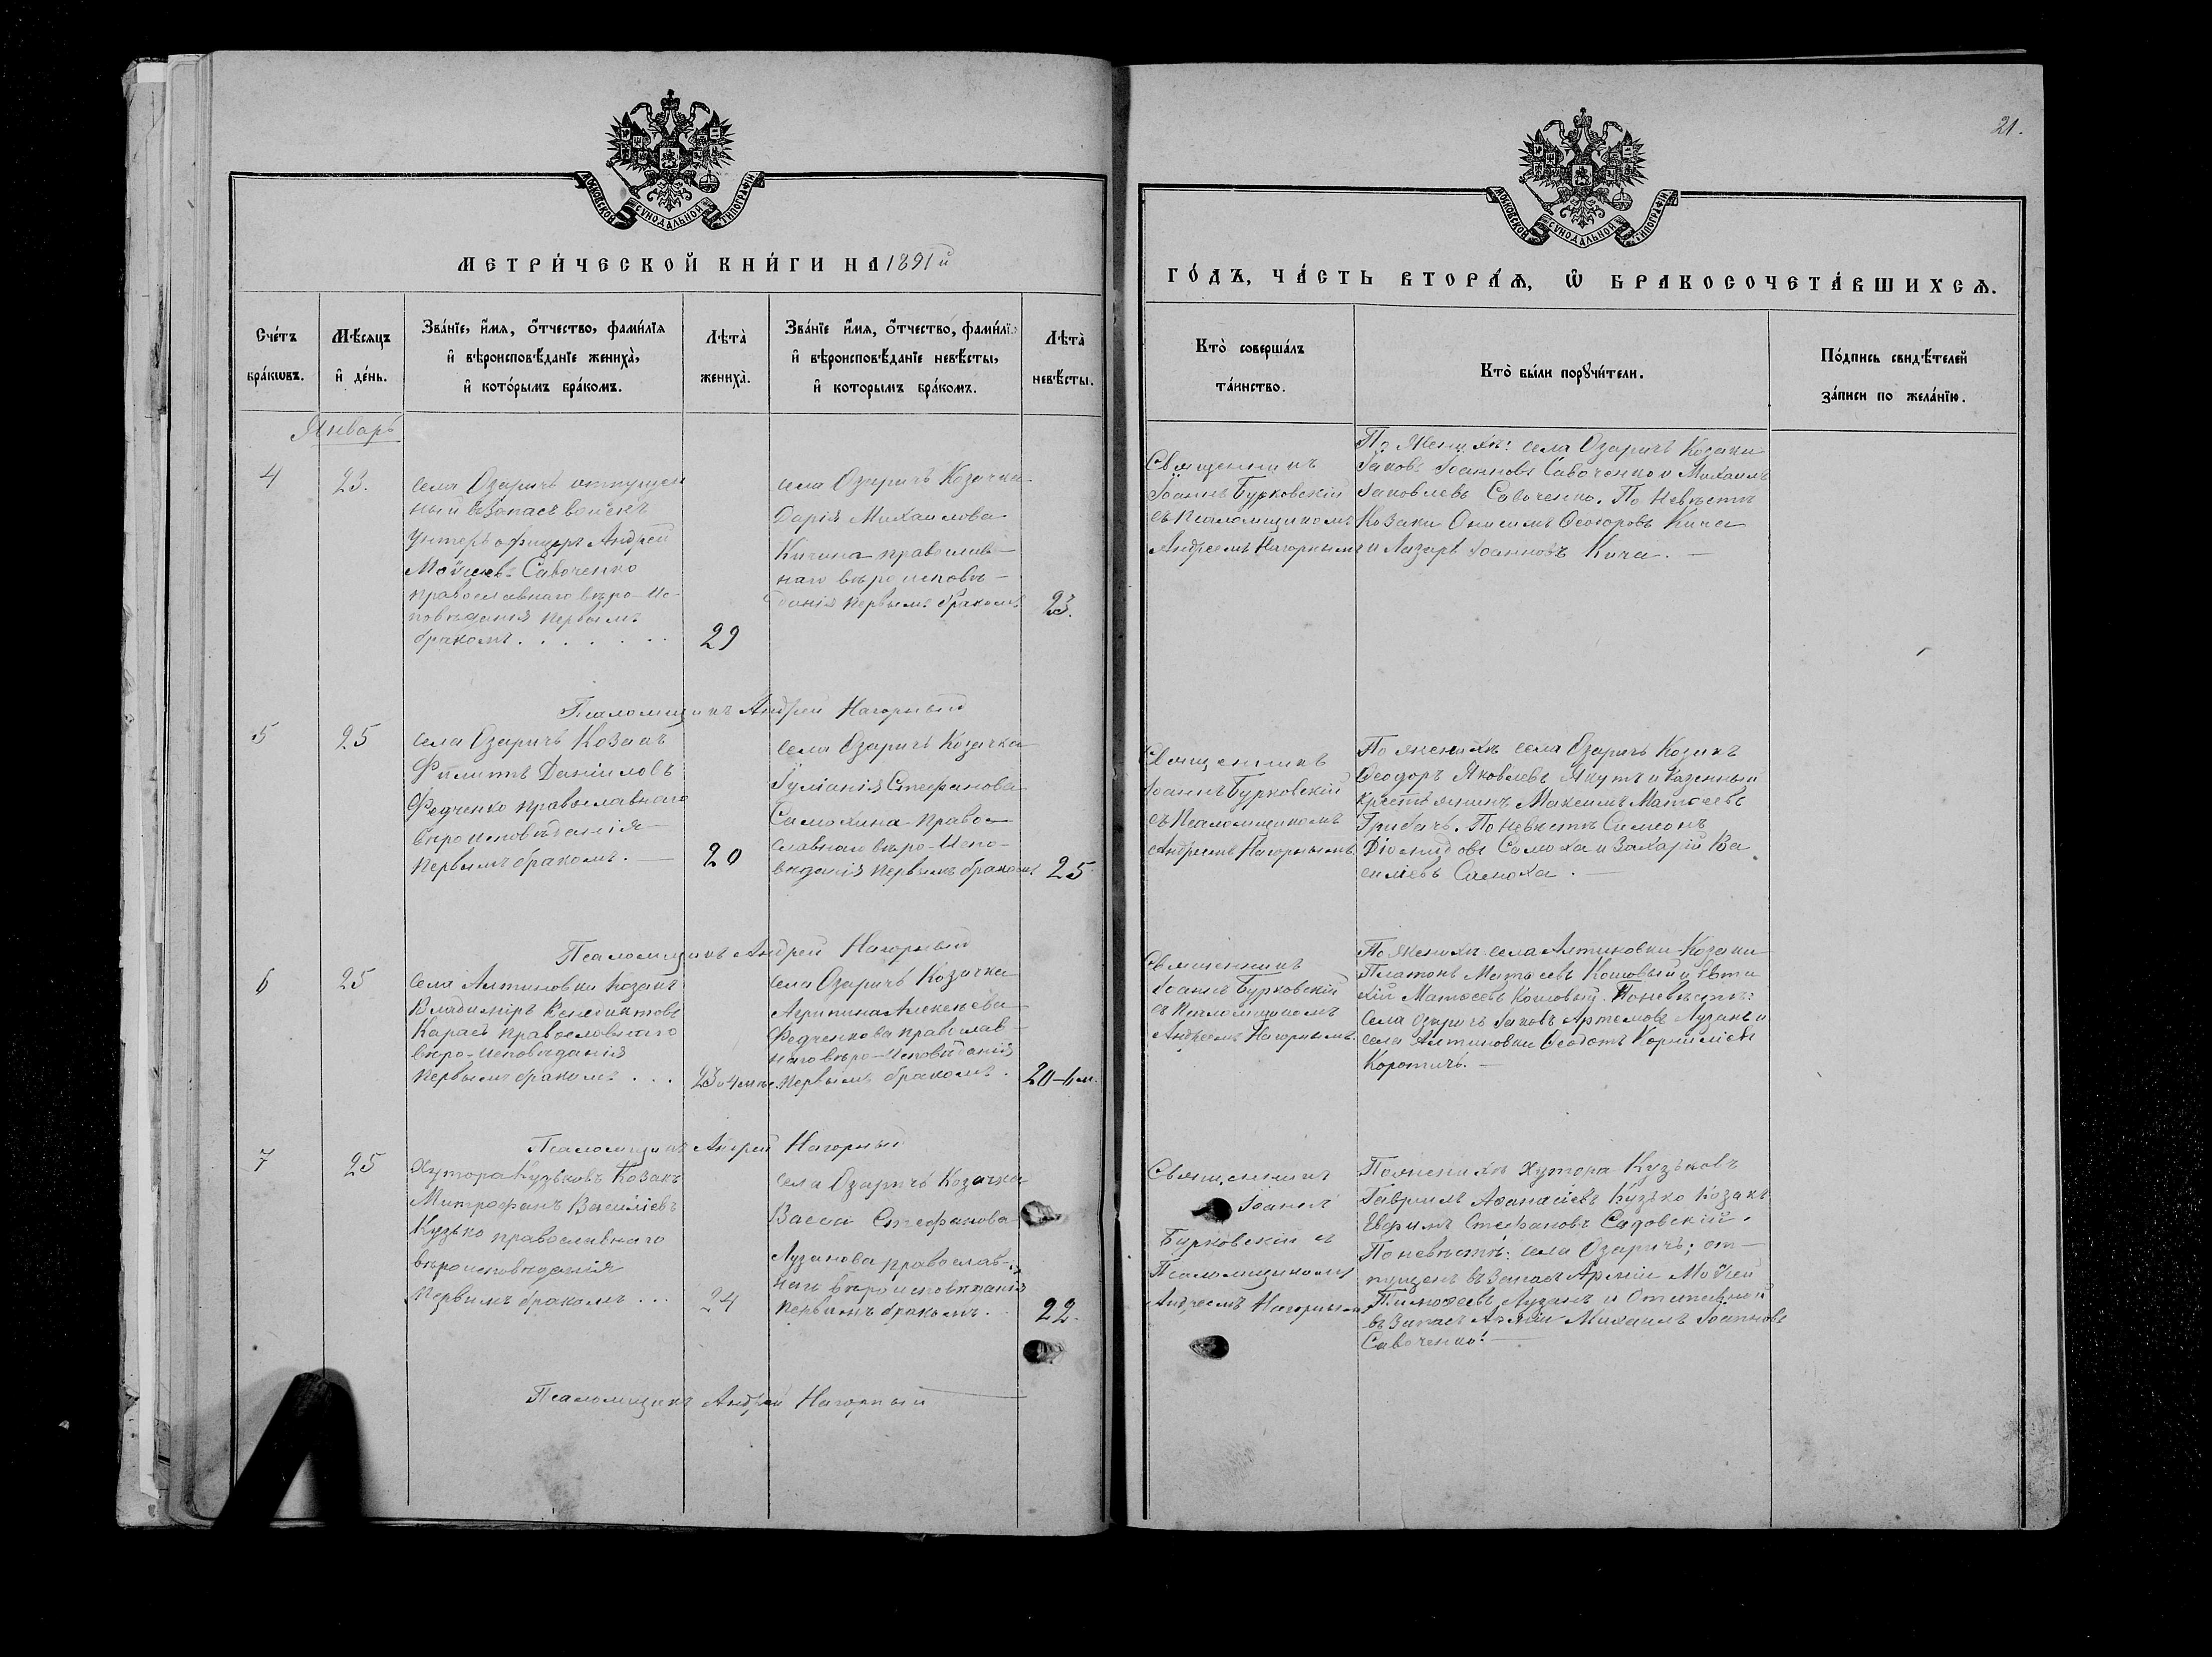 21.
МОСКОВСКОЙ СѴНОДАЛЬНОЙ ТИПОГРАФІИ
МОСКОВСКОЙ СѴНОДАЛЬНОЙ ТИПОГРАФІИ
МЕТРИ́ЧЕСКОЙ КНИ́ГИ НА 1891й
ГО́ДЪ, ЧА́СТЬ ВТОРА́Ѧ, Ѿ БРАКОСОЧЕТА́ВШИХСѦ.
Сче́тъ бра́кѡвъ.
Мѣ́сяцъ и҆ де́нь.
Зва́нїе, и҆́мя, ѻ҆́тчество, фами́лїя
и҆ вѣроисповѣ́данїе жениха̀,
и҆ кото́рымъ бра́комъ.
Лѣта̀ жениха̀.
Зва́нїе и҆́мя, ѻ҆́тчество, фами́лї
и҆ вѣроисповѣ́данїе невѣ́сты,
и҆ которымъ бра́комъ.
Лѣта̀ невѣ́сты.
Кто̀ соверша́лъ
та́инство.
Кто̀ бы́ли порꙋчи́тели.
По́дпись свидѣ́телей
за́писи по жела́нїю.
Январь
4
23.
села Озаричъ отпущен
ный въ запасъ войскъ
Унтеръ офицеръ Андрей
Моѵсеевъ Савоченко
православнаго вѣро-ис-
повѣданія первымъ
бракомъ . . . . . .
29
села Озаричъ Козачка
Дарія Михаилова
Кичина православ-
наго вѣроисповѣ-
данія первымъ бракомъ
23.
Священникъ
Іоаннъ Бурковскій
съ Псаломщикомъ
Андреемъ Нагорнымъ
По Женихѣ: села Озаричъ Козаки
Іаковъ Іоанновъ Савоченко и Михаилъ
Іаковлевъ Савоченко. По Невѣстѣ
Козаки Онисимъ Ѳеодоровъ Кича
и Лазарь Іоанновъ Кича. —
Псаломщикъ Андрей Нагорный
5
25
села Озаричъ Козакъ
Филиппъ Даніиловъ
Федченко православнаго
вѣроисповѣданія
первымъ бракомъ. —
20
села Озаричъ Козачка
Іуліанія Стефанова
Самохина право-
славнаго вѣро-испо-
вѣданія первымъ бракомъ
25
Священникъ
Іоаннъ Бурковскій
съ Псаломщикомъ
Андреемъ Нагорнымъ
По женихѣ села Озаричъ Козакъ
Ѳеодоръ Яковлевъ Якутъ и Казенный
крестьянинъ Максимъ Матѳеевъ
Грибачъ. По невѣстѣ Симеонъ
Діомидовъ Самоха и Захарій Ва
силіевъ Самоха. —
Псаломщикъ Андрей Нагорный
6
25
села Алтыновки Козакъ
Владиміръ Венедиктовъ
Карась православнаго
вѣро-исповѣданія
первымъ бракомъ . . .
села Озаричъ Козачка
Агрипина Алексѣева
Федченкова православ-
наго вѣро-исповѣданія
первымъ бракомъ.
20-6 м.
Священникъ
Іоаннъ Бурковскій
съ Псаломщикомъ
Андреемъ Нагорнымъ.
По женихѣ села Алтыновки Козаки
Платонъ Матѳеевъ Кошовый и Евти
хій Матѳеевъ Кошовый. По невѣстѣ:
села Озаричъ Іаковъ Артемовъ Лузанъ и
села Алтыновки Ѳеодотъ Корниліевъ
Коротичъ. —
Псаломщикъ Андрей Нагорный
7
25
Хутора Кузьковъ Козакъ
Митрофанъ Василіевъ
Кузько православнаго
вѣроисповѣданія
первымъ бракомъ . . .
24
села Озаричъ Козачка
Васса Стефанова
Лузанова православ-
наго вѣроисповѣданія
первымъ бракомъ.
22.
Священникъ
Іоаннъ
Бурковскій съ
Псаломщикомъ
Андреемъ Нагорнымъ
По женихѣ хутора Кузьковъ
Гавриилъ Аѳанасіевъ Кузько козакъ
Евфимъ Стефановъ Садовскій.
По невѣстѣ: села Озаричъ; от-
пущенъ въ Запасъ Арміи Моѵсей
Тимоѳеевъ Лузанъ и
въ Запасъ Арміи Михаилъ Іоанновъ
Савоченко. —
Псаломщикъ Андрей Нагорный